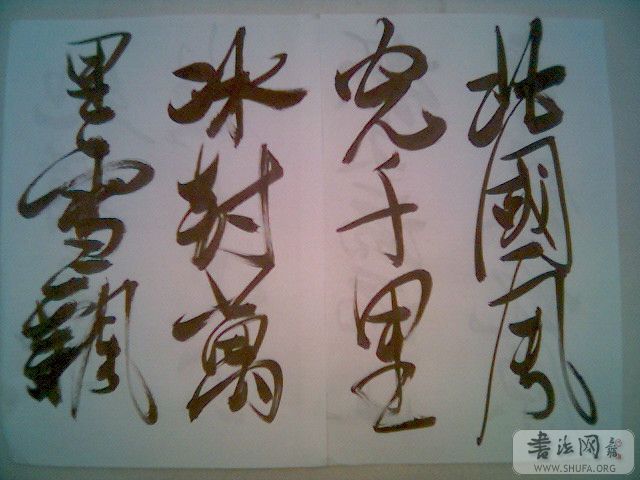 北國風
光千里
冰封萬
里雪飄
書法网
WWW.SHUFA.ORG